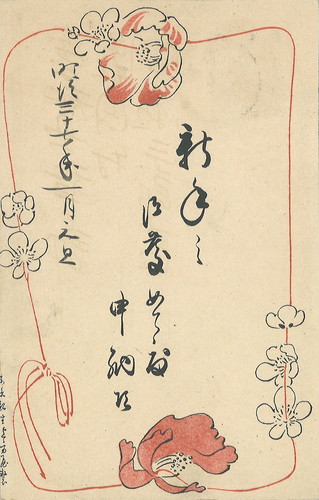 新年之
御慶めて度
申納候
明治三十七年一月元旦